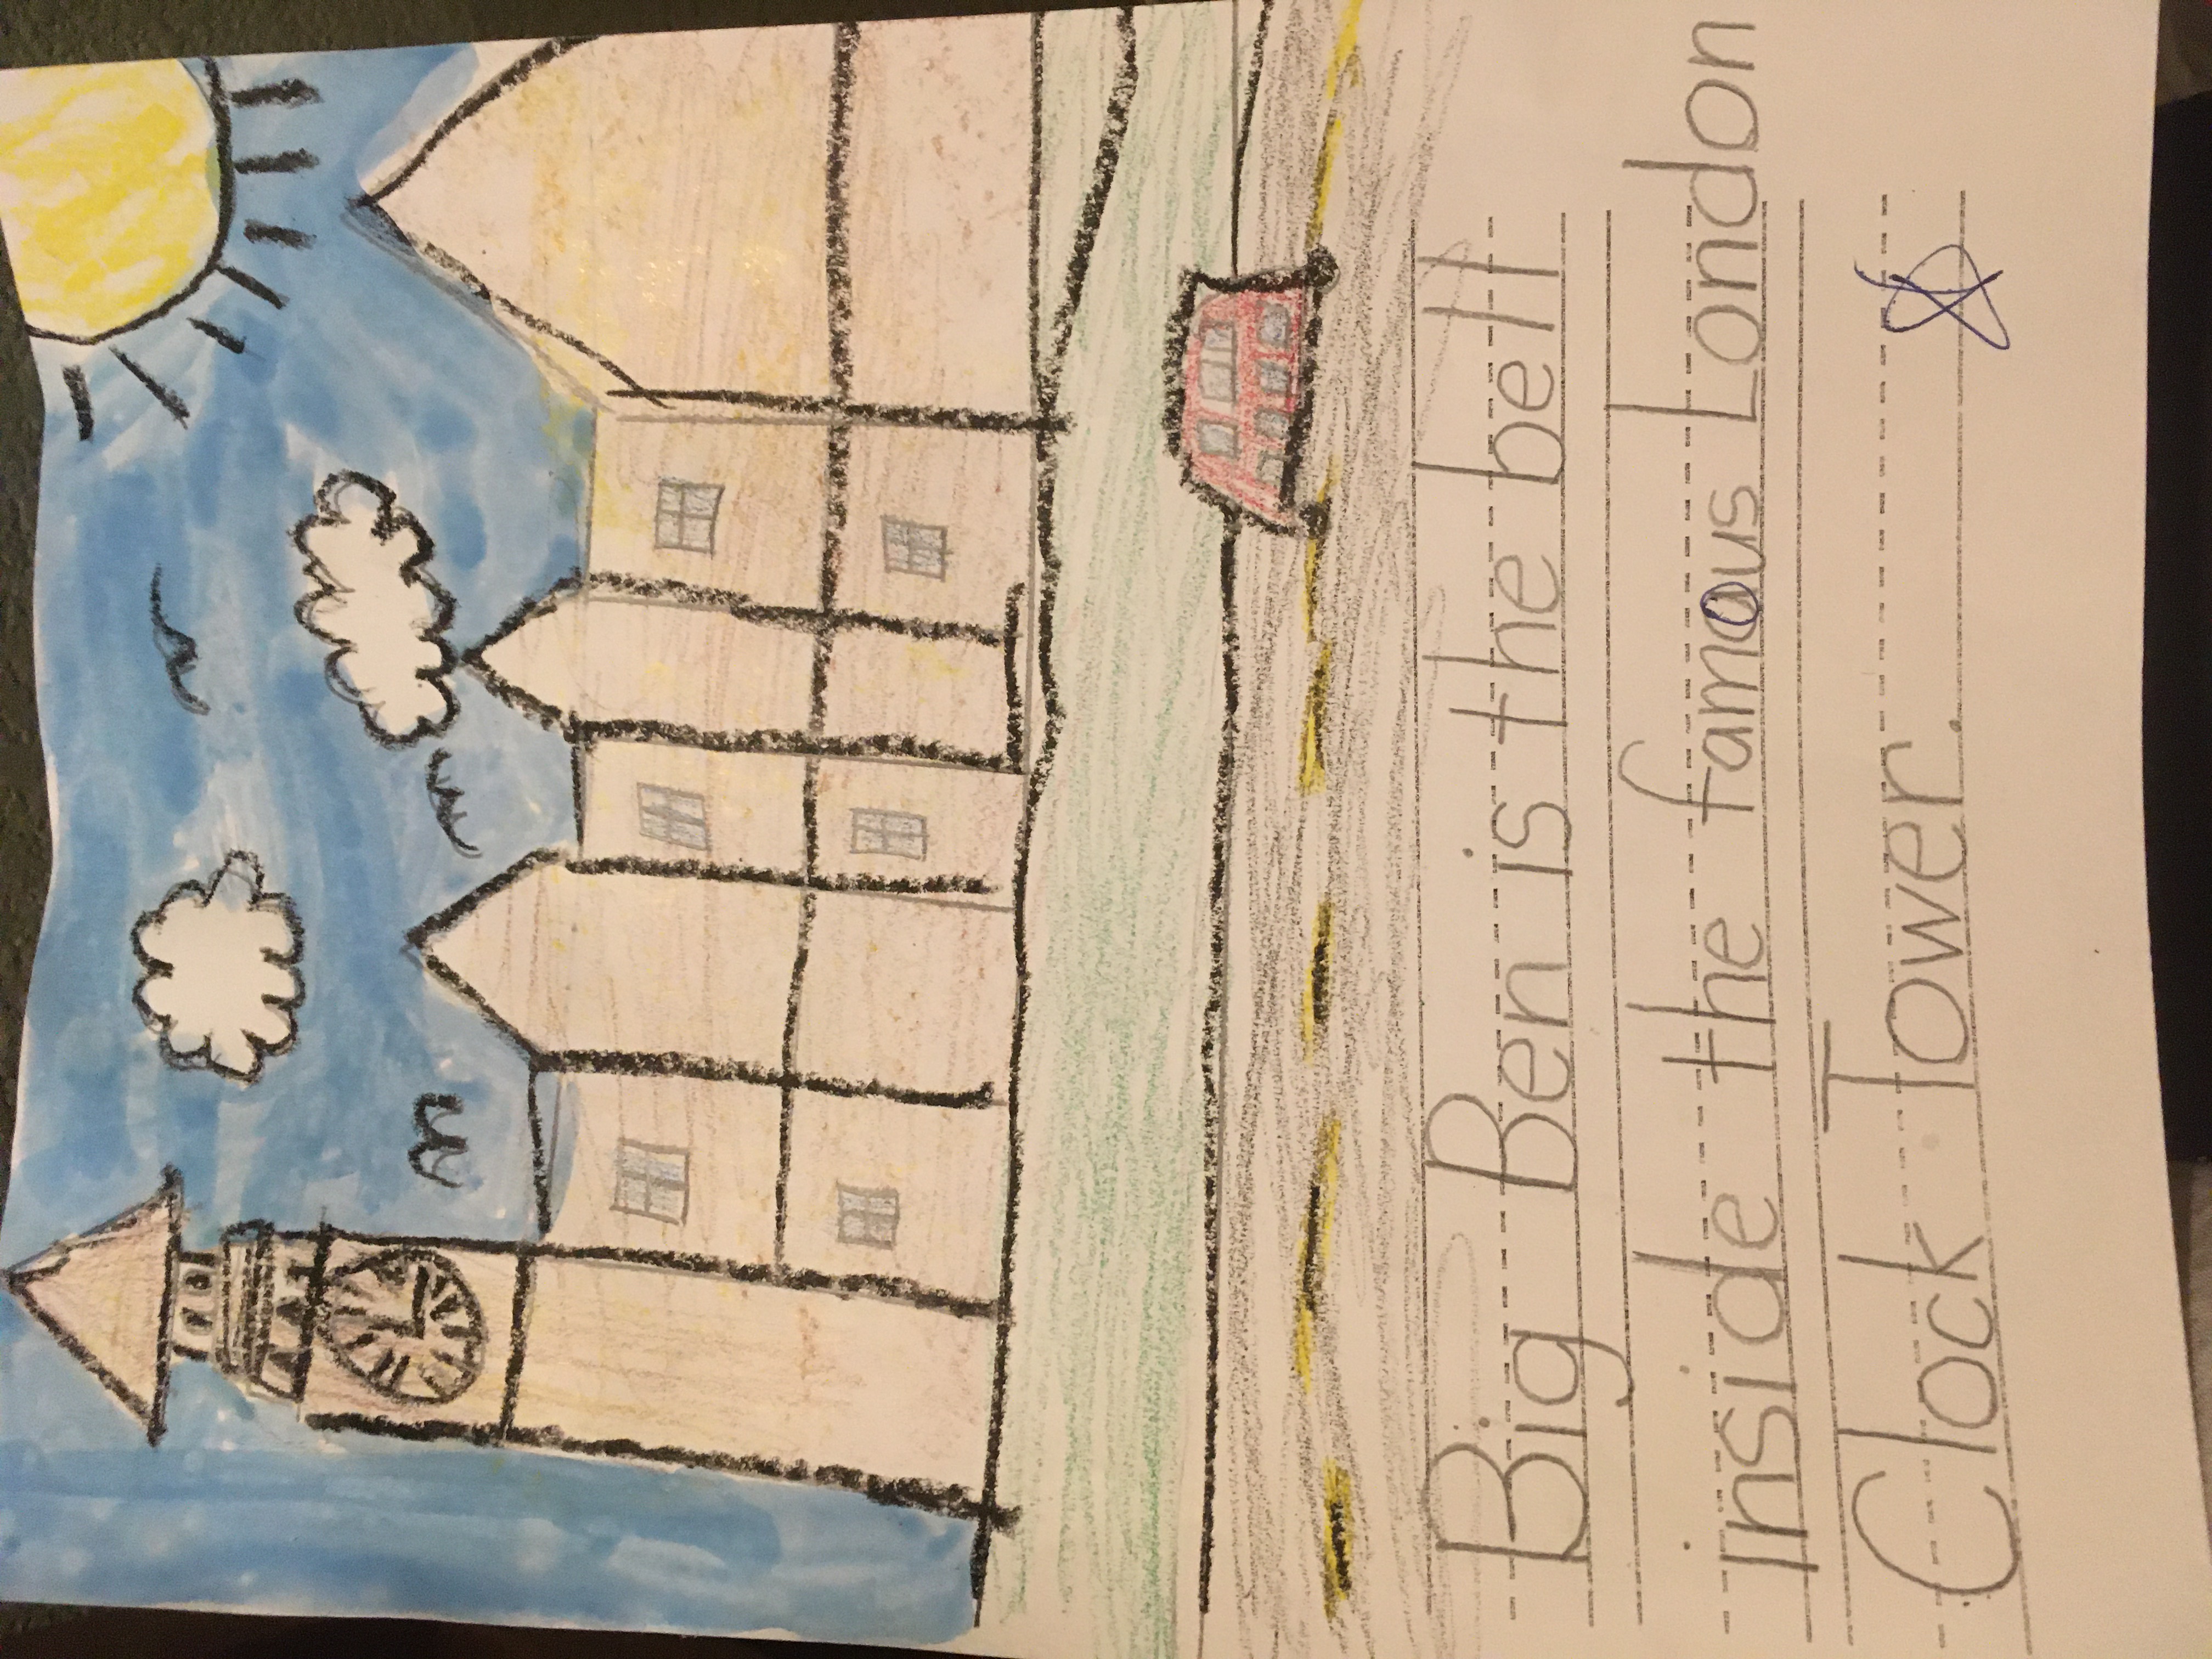 Big Ben is the bell
inside the famous London
Clock Tower.